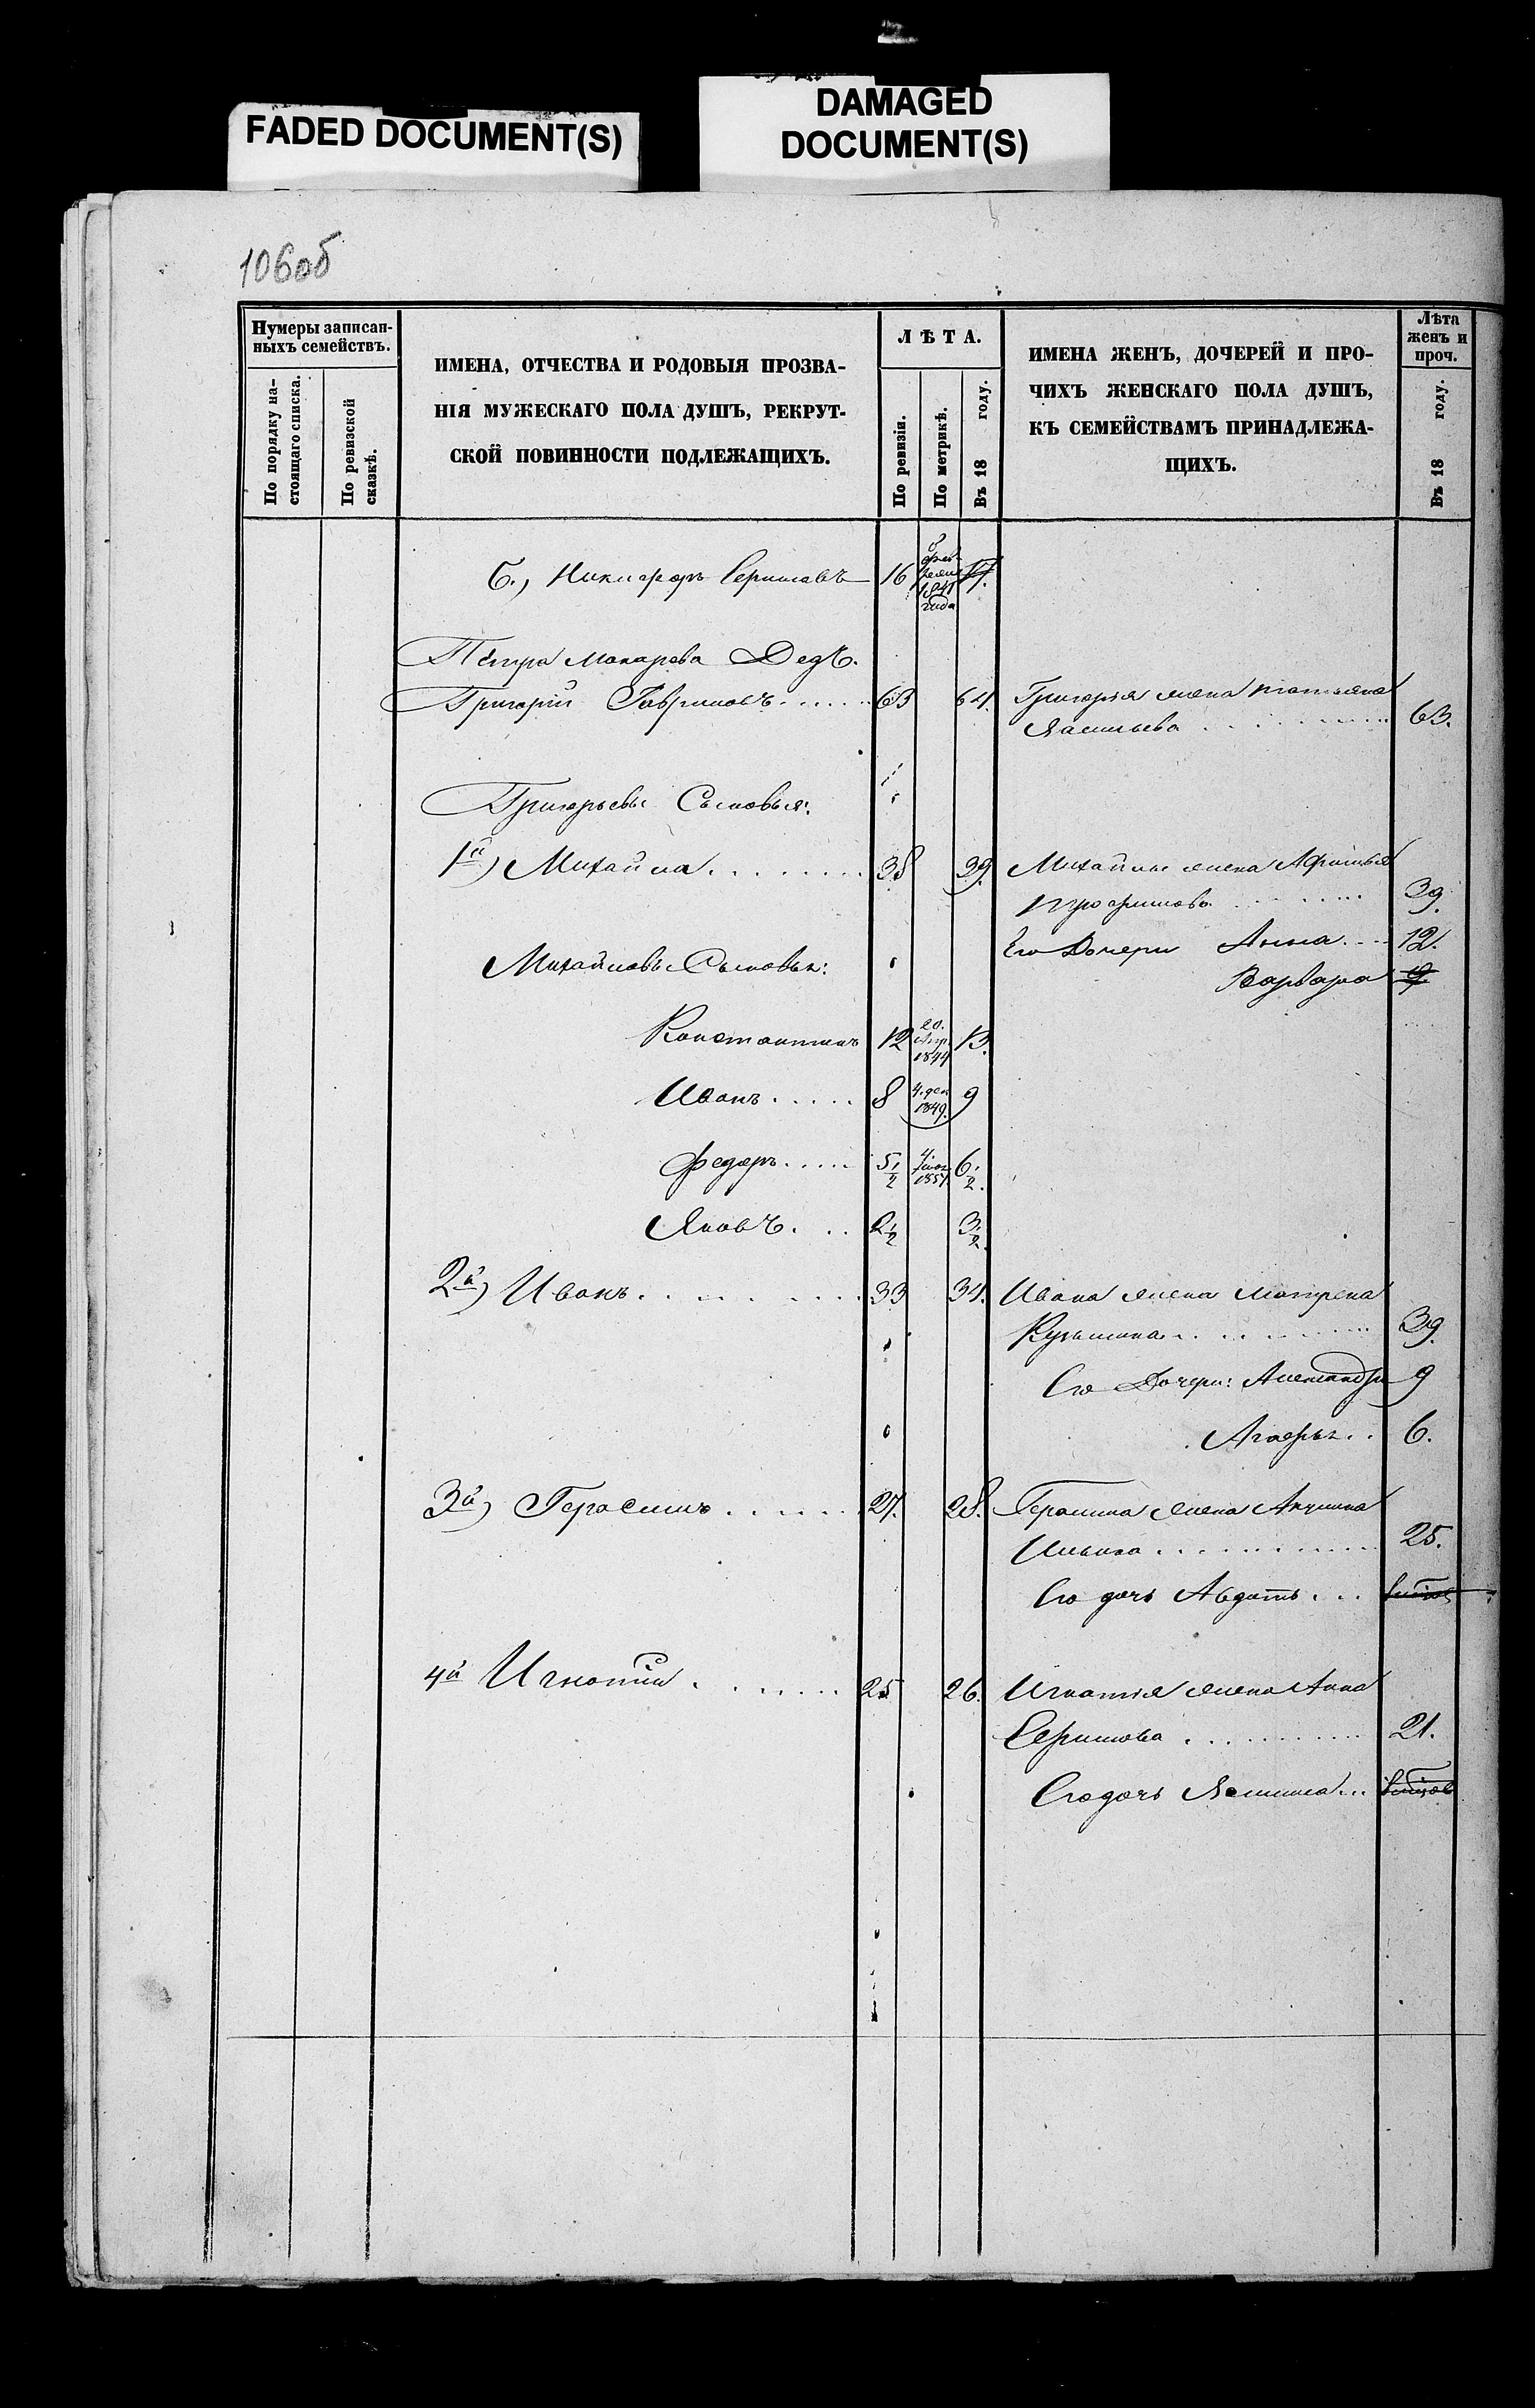 FADED DOCUMENT(S)
DAMAGED
DOCUMENT(S)
106об
Нумеры записан-
ныхъ семействъ.
По порядку на-
стоящаго списка.
По ревизской
сказкѣ.
ИМЕНА, ОТЧЕСТВА И РОДОВЫЯ ПРОЗВА-
НІЯ МУЖЕСКАГО ПОЛА ДУШЪ, РЕКРУТ-
СКОЙ ПОВИННОСТИ ПОДЛЕЖАЩИХЪ.
ЛѢТА.
По ревизіи.
По метрикѣ.
Въ 18 году.
ИМЕНА ЖЕНЪ, ДОЧЕРЕЙ И ПРО-
ЧИХЪ ЖЕНСКАГО ПОЛА ДУШЪ,
КЪ СЕМЕЙСТВАМЪ ПРИНАДЛЕЖА-
ЩИХЪ.
Лѣта
женъ и
проч.
Въ 18 году.
Никифоръ 16 1841 года 17.
Петра Макарова Дедъ.
Григорій Гавриловъ 63 64. Григорія жена Татьяна
Васильева 63.
Григорьевы Сыновья:
1й) Михайла 38 39. Михайлы жена Афимья
Трофимова 39.
Его Дочери Анна 12.
Михайловы Сыновья:
Варвара
Константинъ 12 20. Апр. 1844 13.
Иванъ 8 4. дек 1849. 9
Федоръ 5 1/2 6 1/2.
Яковъ 2 1/2 3 1/2.
2й) Иванъ 33 34. Ивана жена Матрена
Кузьмина 39.
Его Дочери: Александра 9
Агафья 6.
3й) Герасимъ 27. 28. Герасима жена Акулина
Ильина 25.
Его дочь Авдотья
4й Игнатій 25 26. Игнатія жена Анна
Ефимова 21.
Его дочь